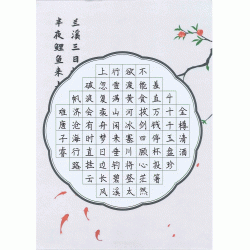 兰溪三日
半夜鲤鱼来
金樽清酒
斗十千玉盘珍
羞直万钱停杯投箸
不能食拔剑四顾心茫然
欲渡黄河冰塞川将登太
行雪满山闲来垂钓碧溪
上忽复乘舟梦日边长风
破浪会有时直挂云
帆济沧海行路
难唐子睿